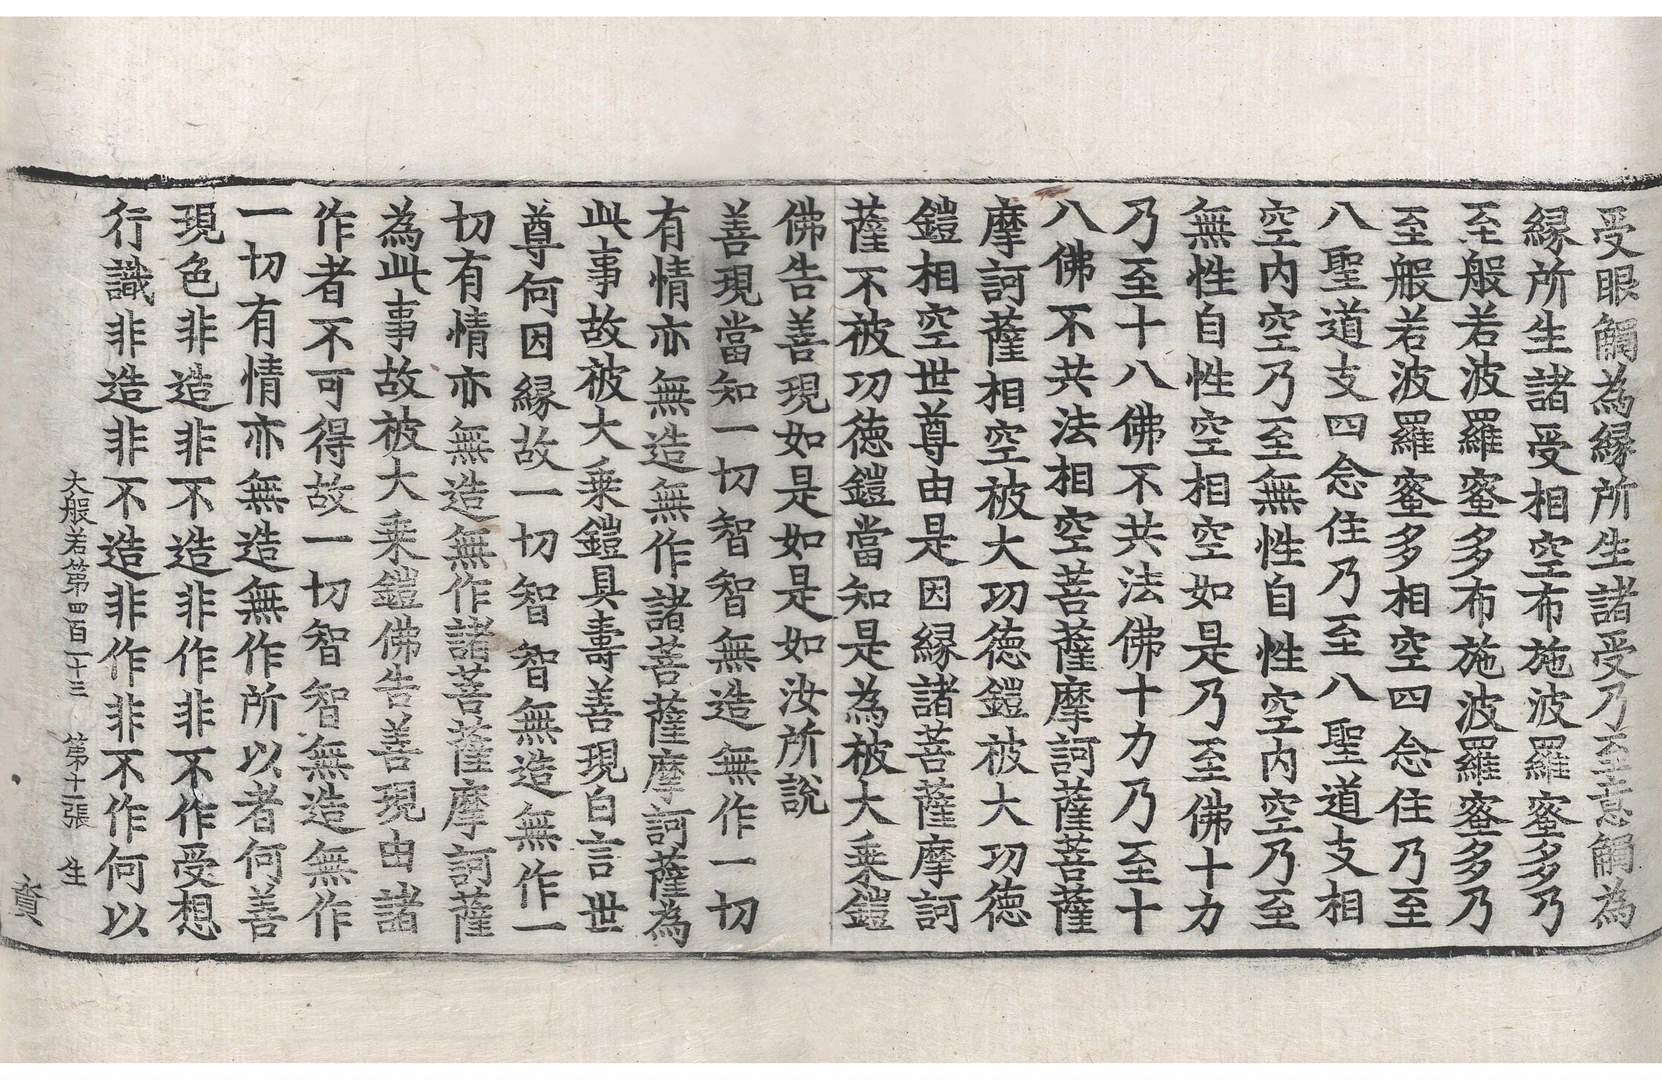 受眼觸為縁所生諸受乃至意觸為
縁所生諸受相空布施波羅蜜多乃
至般若波羅蜜多布施波羅蜜多乃
至般若波羅蜜多相空四念住乃至
八聖道支四念住乃至八聖道支相
空內空乃至無性自性空內空乃至
無性自性空相空如是乃至佛十力
乃至十八佛不共法佛十力乃至十
八佛不共法相空菩薩摩訶薩菩薩
摩訶薩相空被大功德鎧被大功德
鎧相空世尊由是因縁諸菩薩摩訶
薩不被功德鎧當知是為被大乘鎧
佛告善現如是如是如汝所說
善現當知一切智智無造無作一切
有情亦無造無作諸菩薩摩訶薩為
此事故被大乘鎧具壽善現白言世
尊何因縁故一切智智無造無作一
切有情亦無造無作諸菩薩摩訶薩
為此事故被大乘鎧佛告善現由諸
作者不可得故一切智智無造無作
一切有情亦無造無作所以者何善
現色非造非不造非作非不作受想
行識非造非不造非作非不作何以
大般若第四百一十三 第十一張 生